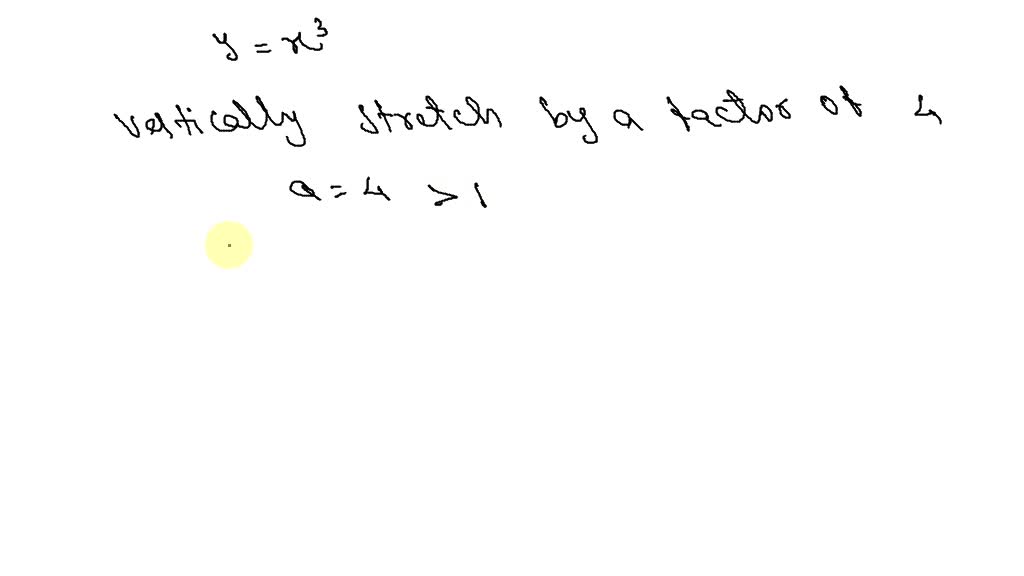 y = x³
vertically stretch by a factor of 4
a = 4 > 1